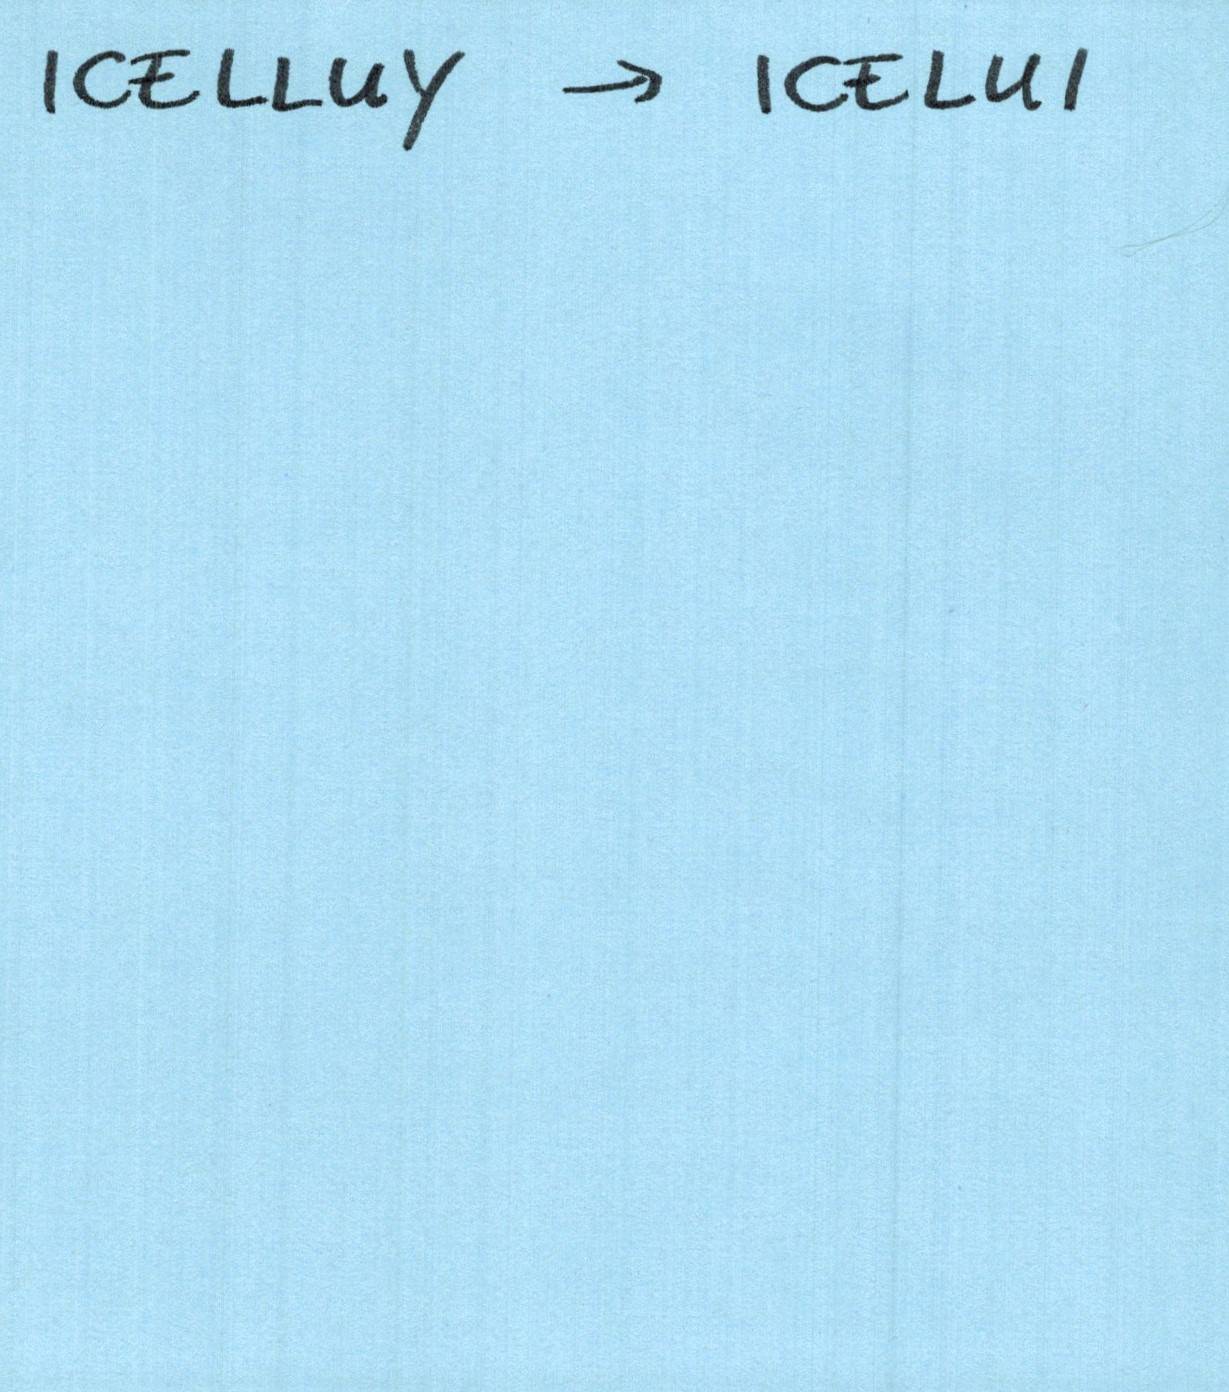 ICELLUY → ICELUI